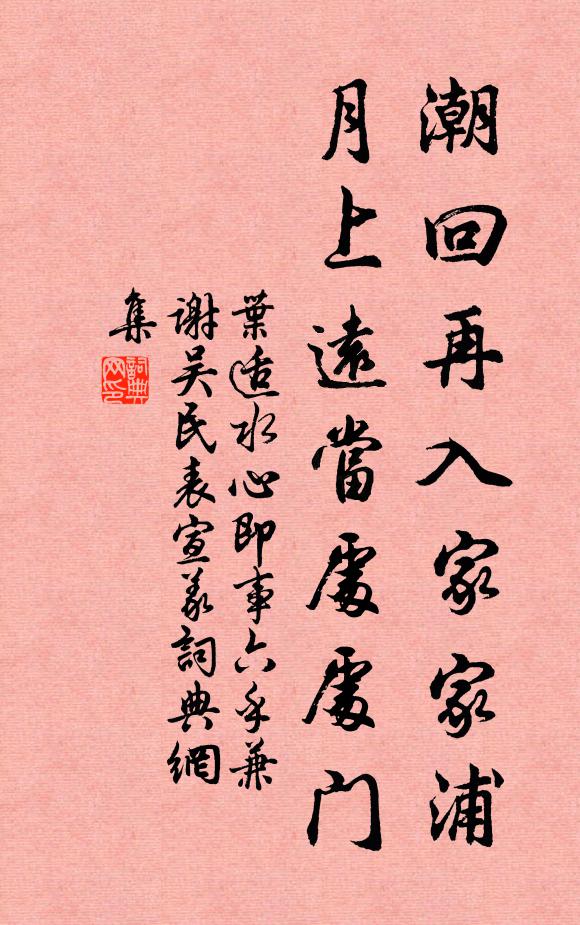 潮回再入家家浦
月上遠當處處門
葉適水心即事六手兼
謝吴民表宣義詞典網
集
詞典
网印